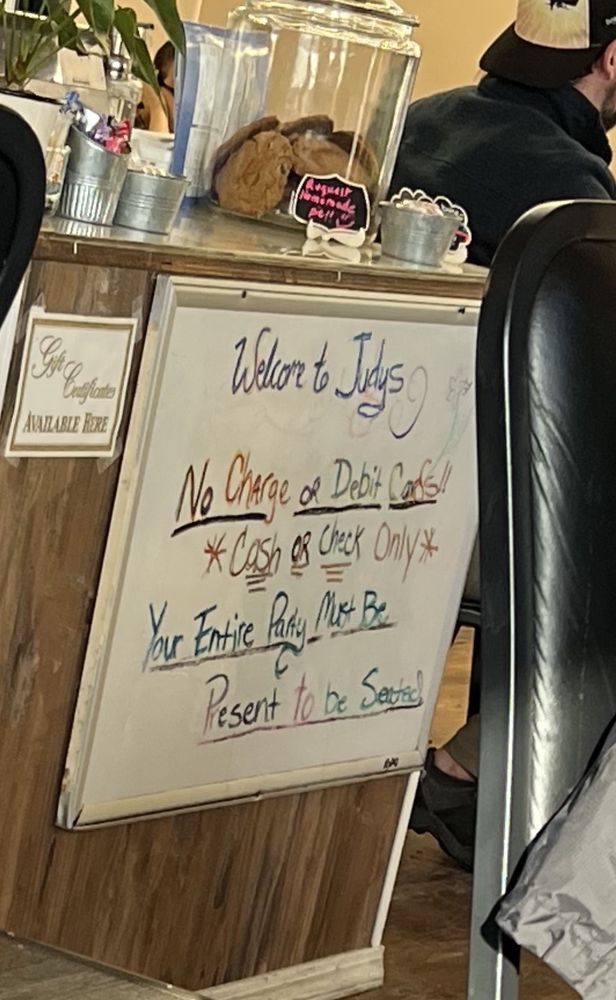 Request
Homemade
Gift
Certificates
AVAILABLE HERE
Welcome to Judys
No Charge or Debit Cards!!
*Cash OR Check Only*
Your Entire Party Must Be
Present to be Seated